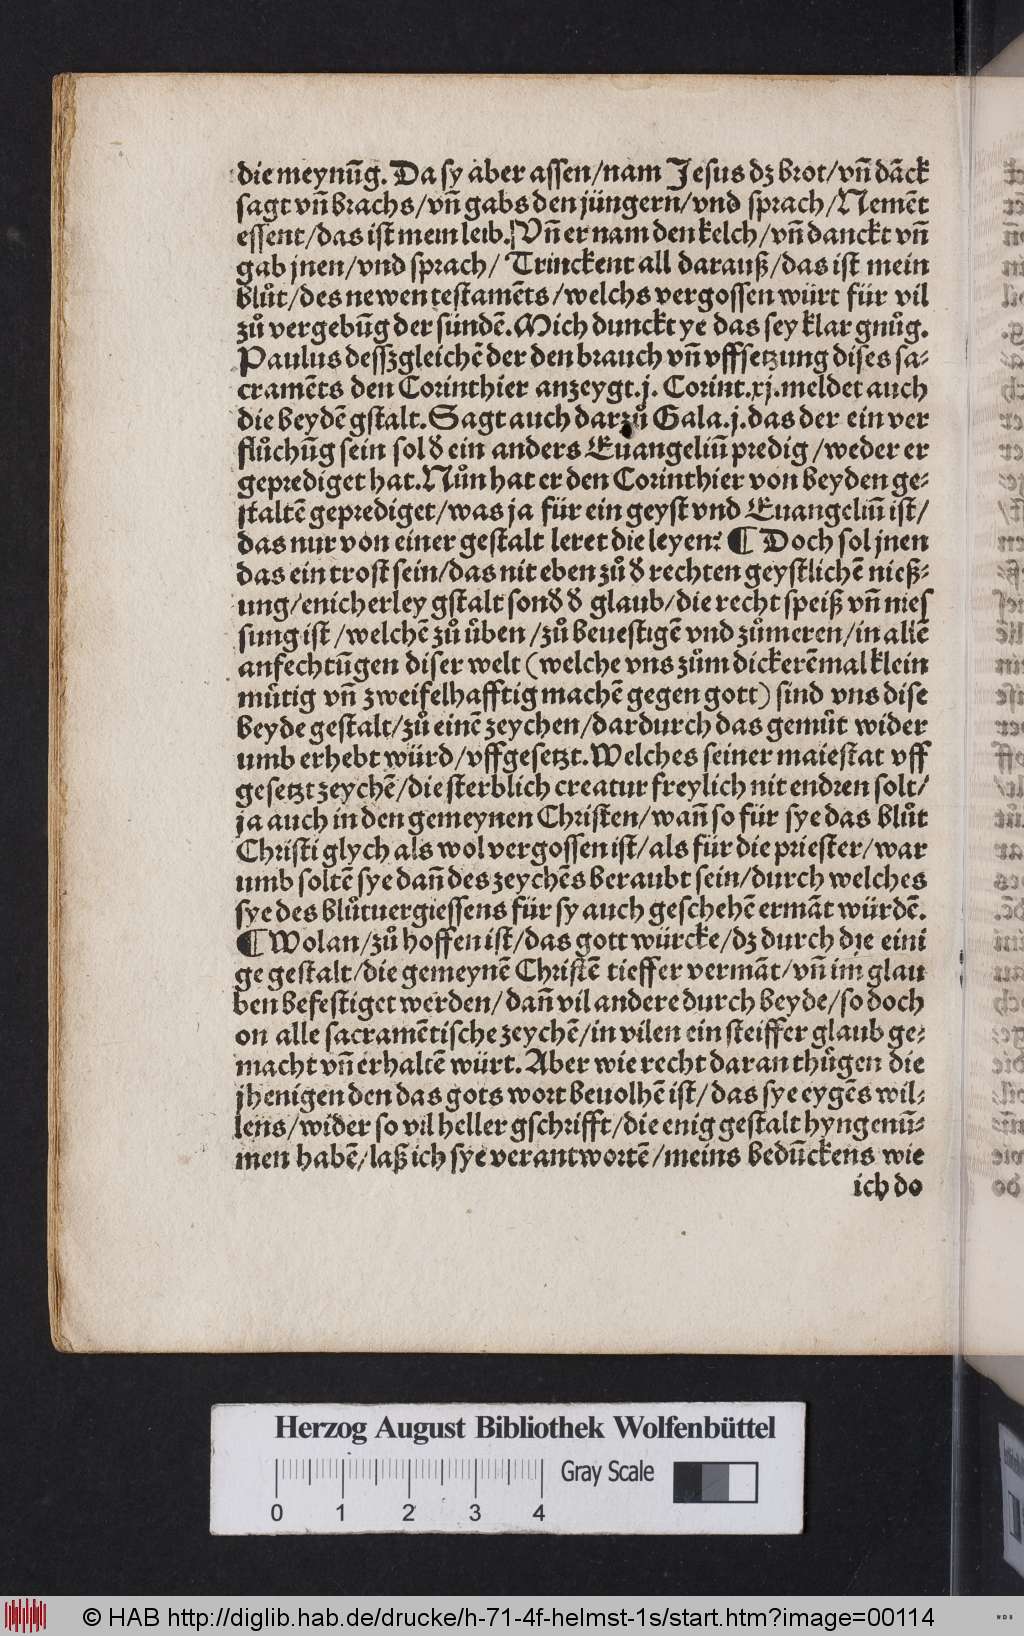 die meynūg. Da sy aber assen/nam Jesus dz brot/vn̄ dāck
sagt vn̄ brachs/vn̄ gabs den jüngern/vnd sprach/Nemēt
essent/das ist mein leib. Vn̄ er nam den kelch/vn̄ danckt vn̄
gab jnen/vnd sprach/ Trinckent all darauß/das ist mein
blůt/des newen testamēts/welchs vergossen würt für vil
zů vergebūg der sündē. Mich dunckt ye das sey klar gnůg.
Paulus desszgleichē der den brauch vn̄ vffsetzung dises sa⸗
cramēts den Corinthier anzeygt.j. Corint.xj.meldet auch
die beydē gstalt. Sagt auch darzů Gala.j.das der ein ver
flůchūg sein sol đ ein anders Euangeliū predig/weder er
geprediget hat. Nůn hat er den Corinthier von beyden ge⸗
staltē geprediget/was ja für ein geyst vnd Euangeliū ist/
das nur von einer gestalt leret die leyen? ¶ Doch sol jnen
das ein trost sein/das nit eben zů đ rechten geystlichē nieß⸗
ung/enicherley gstalt sonđ đ glaub/die recht speiß vn̄ nies
sung ist/welchē zů ůben/zů beuestigē vnd zůmeren/in allē
anfechtūgen diser welt (welche vns zům dickerēmal klein
můtig vn̄ zweifelhafftig machē gegen gott) sind vns dise
beyde gestalt/zů einē zeychen/dardurch das gemůt wider
umb erhebt würd/vffgesetzt. Welches seiner maiestat vff
gesetzt zeychē/die sterblich creatur freylich nit endren solt/
ja auch in den gemeynen Christen/wan̄ so für sye das blůt
Christi glych als wol vergossen ist/als für die priester/war
umb soltē sye dan̄ des zeychēs beraubt sein/durch welches
sye des blůtuergiessens für sy auch geschehē ermāt würdē.
¶ Wolan/zů hoffen ist/das gott würcke/dz durch die eini
ge gestalt/die gemeynē Christē tieffer vermāt/vn̄ im glau
ben befestiget werden/dan̄ vil andere durch beyde/so doch
on alle sacramētische zeychē/in vilen ein steiffer glaub ge⸗
macht vn̄ erhaltē würt. Aber wie recht daran thůgen die
jhenigen den das gots wort beuolhē ist/das sye eygēs wil⸗
lens/wider so vil heller gschrifft/die enig gestalt hyngenū⸗
men habē/laß ich sye verantwortē/meins bedūckens wie
ich do
Herzog August Bibliothek Wolfenbüttel
Gray Scale
0 1 2 3 4
© HAB http://diglib.hab.de/drucke/h-71-4f-helmst-1s/start.htm?image=00114